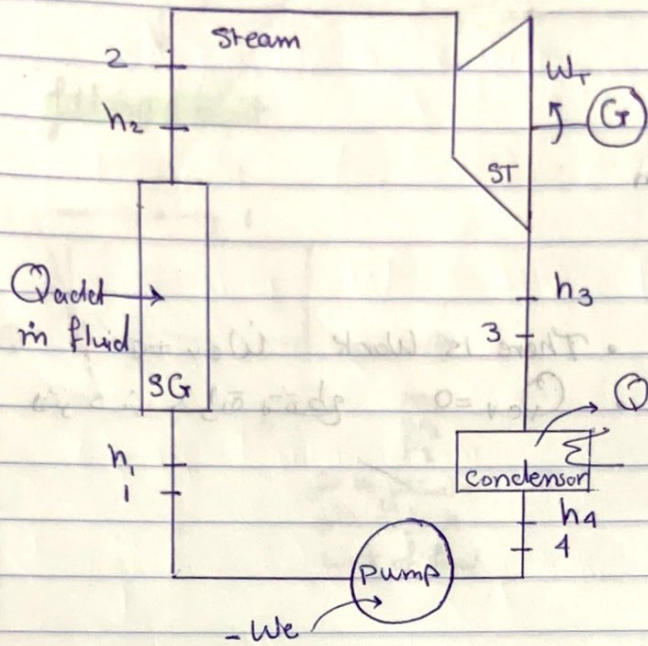 Steam
2
h₂
W_T
G
ST
Qadd
ṁ fluid
SG
h₃
3
Q
h₁
1
Condensor
h₄
4
Pump
- We